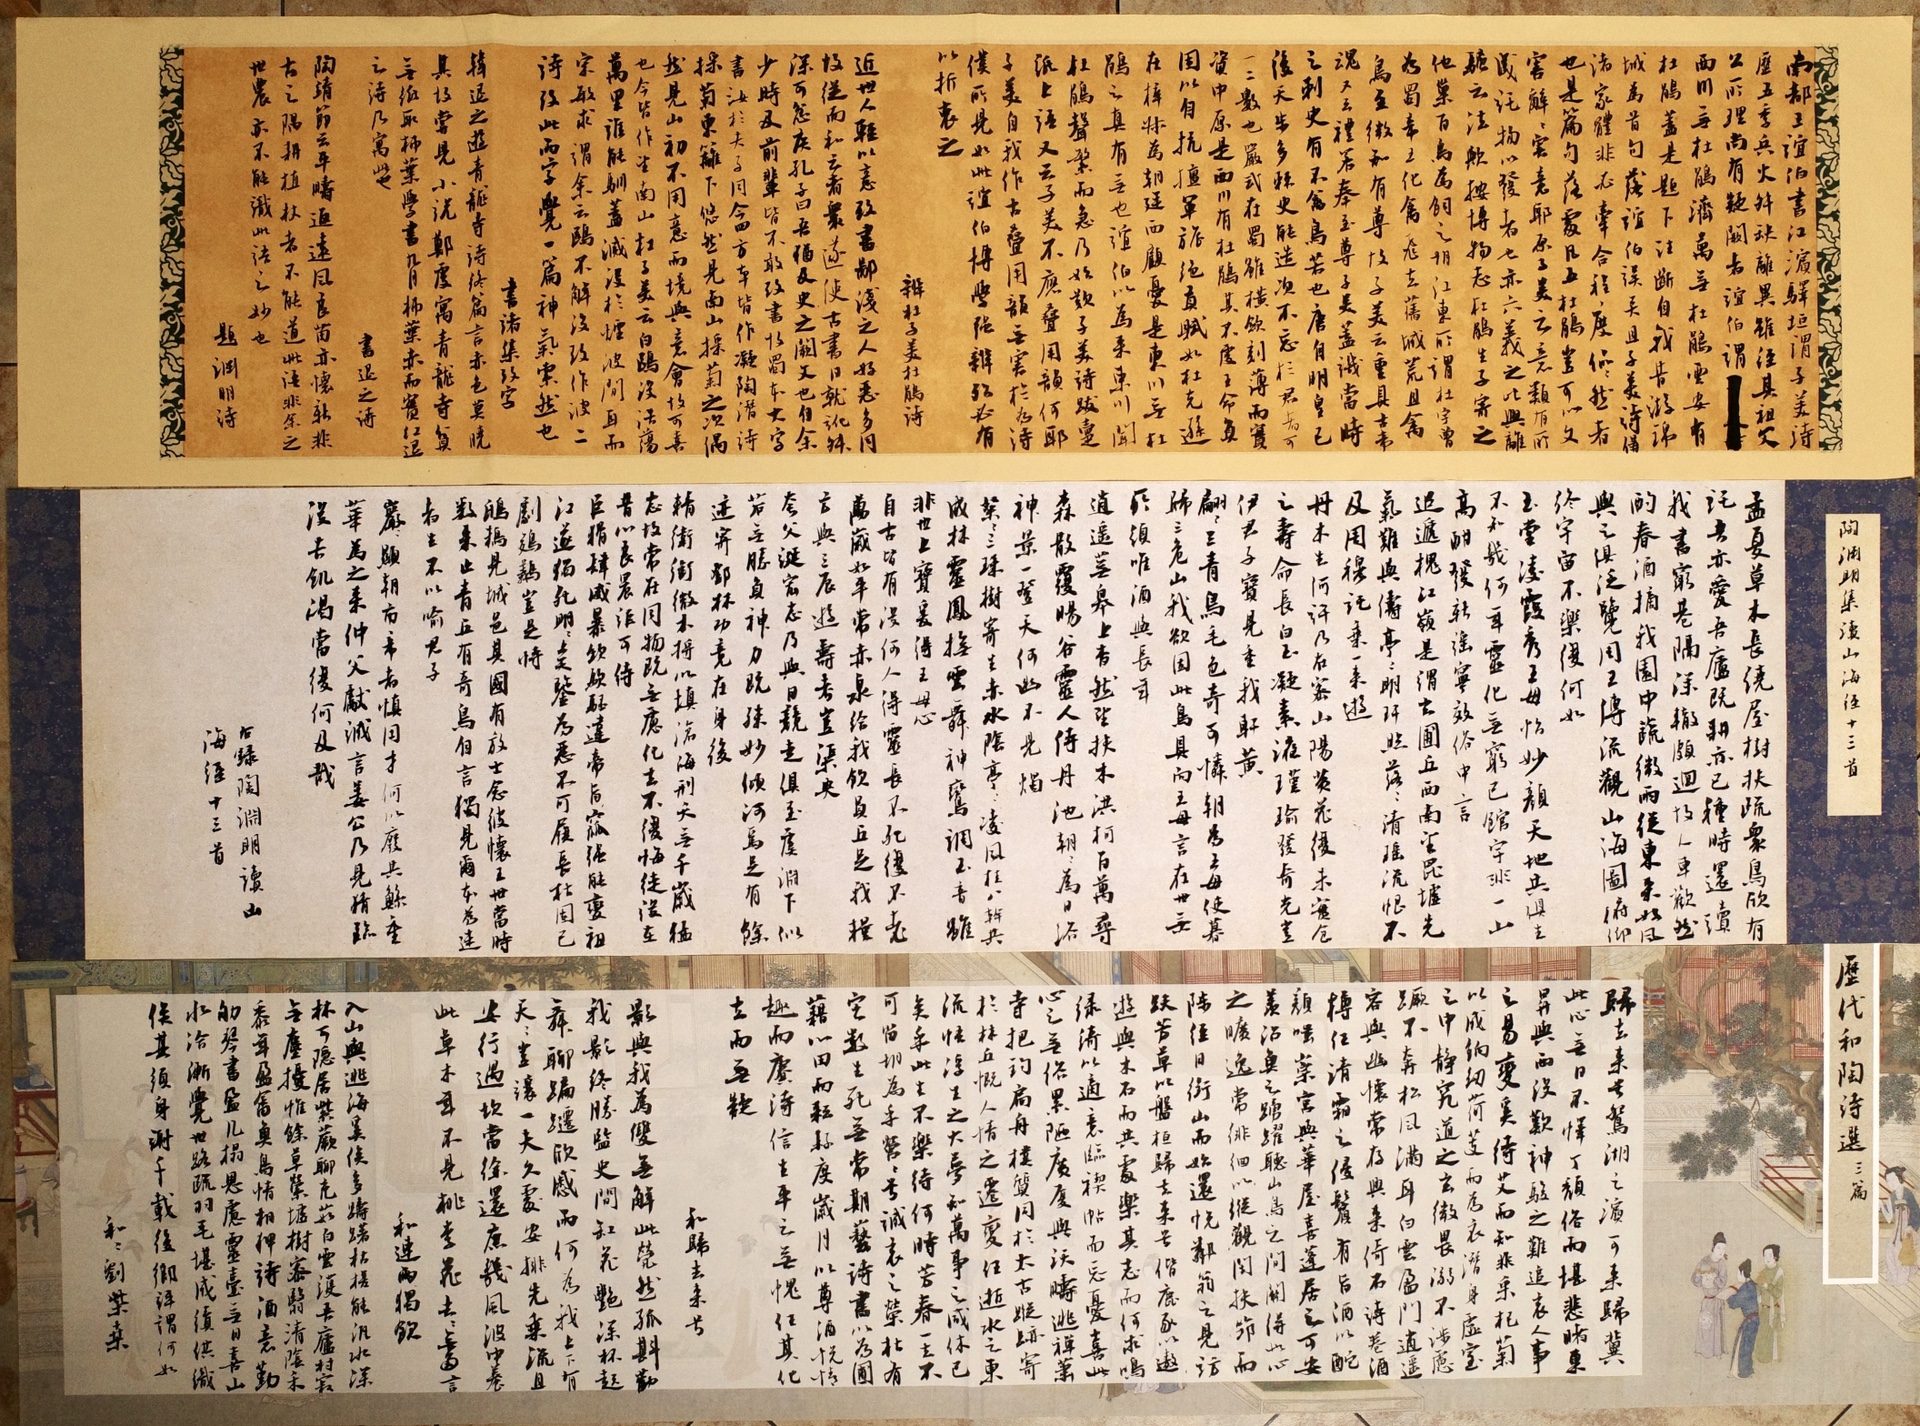 南都王誼伯書江濱驛垣謂子美詩
歷五季兵火舛缺離異雖經其祖父
公所理尚有疑闕者誼伯謂
西川有杜鵑東川無杜鵑涪萬無杜鵑雲安有
杜鵑蓋是題下注斷自我昔游錦
城為首句落誼伯誤矣且子美詩備
諸家體非必牽合程度侃侃然者
也是篇句落處凡五杜鵑豈可以文
害辭辭害意耶原子美之意類有所
感託物以發者也亦六義之比興離
騷之法歟按博物志杜鵑生子寄之
他巢百鳥為飼之胡江東所謂杜宇曾
為蜀帝王化禽飛去舊城荒且禽
鳥至微知有尊故子美云重是古帝
魂又云禮若奉至尊子美蓋譏當時
之刺史有不禽鳥若也唐自明皇已
後天步多棘刺史能造次不忘於君者可
一二數也嚴武在蜀雖橫斂刻薄而實
資中原是西川有杜鵑其不虔王命負
固以自抗擅軍旅絕貢賦如杜克遜
在梓州為朝廷西顧憂是東川無杜
鵑耳其有無也誼伯以為來東川聞
杜鵑聲繁而急乃始歎子美詩跋疐
紙上語又云子美不應疊用韻何耶
子美自我作古疊用韻無害於為詩
僕所見如此誼伯博學強辨殆必有
以折衷之
辨杜子美杜鵑詩
近世人輕以意改書鄙淺之人好惡多同
故從而和之者衆遂使古書日就訛舛
深可忿疾孔子曰吾猶及史之闕文也自余
少時及前輩皆不敢改書故蜀本大字
書採菊東籬下悠然見南山採菊之次偶
然見山初不用意而境與意會故可喜
也今皆作望南山杜子美云白鷗沒浩蕩
萬里誰能馴蓋滅沒於煙波間耳而
宋敏求謂余云鷗不解沒改作波二
詩改此兩字覺一篇神氣索然也
書諸集改字
韓退之遊青龍寺詩終篇言赤色莫曉
其故嘗見小說鄭虔寓青龍寺貧
無紙取柿葉學書九月柿葉赤而實紅退
之詩乃寓此也
書退之詩
陶靖節云平疇遠風良苗亦懷新非
古之隅耕植杖者不能道此語非余之
世農亦不能識此語之妙也
題淵明詩
陶淵明集讀山海經十三首
孟夏草木長繞屋樹扶疏衆鳥欣有
託吾亦愛吾廬既耕亦已種時還讀
我書窮巷隔深轍頗迴故人車歡然
酌春酒摘我園中蔬微雨從東來好風
與之俱泛覽周王傳流觀山海圖俯仰
終宇宙不樂復何如
玉堂凌霞秀王母怡妙顏天地共俱生
不知幾何年靈化無窮已館宇非一山
高酣發新謠寧效俗中言
迢遞槐江嶺是謂玄圃丘西南望崑墟光
氣難與儔亭亭明玕照落落清瑤流恨不
及周穆託乘一來遊
丹木生何許乃在峚山陽黃花復朱實食
之壽命長白玉凝素液瑾瑜發奇光豈
伊君子寶見重我軒黃
翩翩三青鳥毛色奇可憐朝為王母使暮
歸三危山我欲因此鳥具向王母言在世無
所須唯酒與長年
逍遙蕪皋上杳然望扶木洪柯百萬尋
森散覆暘谷靈人侍丹池朝朝為日浴
神景一登天何幽不見燭
粲粲三珠樹寄生赤水陰亭亭凌風桂八幹共
成林靈鳳撫雲舞神鸞調玉音雖
非世上寶爰得王母心
自古皆有沒何人得靈長不死復不老
萬歲如平常赤泉給我飲員丘足我糧
方與三辰遊壽考豈渠央
夸父誕宏志乃與日競走俱至虞淵下似
若無勝負神力既殊妙傾河焉足有餘
迹寄鄧林功竟在身後
精衛銜微木將以填滄海刑天舞干戚猛
志故常在同物既無慮化去不復悔徒設在
昔心良晨詎可待
巨猾肆威暴欽䲹違帝旨窫窳強能變祖
江遂獨死明明上天鑒為惡不可履長枯固已
劇鵕鶚豈足恃
鴟鵂見城邑其國有放士念彼懷王世當時
數來止青丘有奇鳥自言獨見爾本為迷
者生不以喻君子
巖巖顯朝市帝者慎用才何以廢共鯀重
華為之來仲父獻誠言姜公乃見猜臨
沒告飢渴當復何及哉
右錄陶淵明讀山
海經十三首
歷代和陶詩選三篇
歸去來兮鴛湖之濱可來歸冀
此心無日不懌丁頹俗而堪悲睹東
昇與西沒歎神駿之難追哀人事
之易變奚待艾而知非采杞菊
以成絢紉荷芰而為衣潛身虛室
之中靜究道之玄微畏溺不涉憑
蹶不奔松風滿耳白雲盈門逍遙
容與幽懷常存興來倚石詩卷酒
樽任清霜之侵鬢有旨酒以酡
顏嗤棠宮與華屋喜蓬居之可安
羨沼魚之踴躍聽山鳥之間關得此心
之曠逸常徘徊以縱觀閒扶筇而
陟徑日銜山而始還悅鄰翁之見訪
趺苔草以盤桓歸去來兮偕鹿豕以遨
遊與木石而共處樂其志而何求鳴
綠綺以適意臨禊帖而忘憂喜此
心之無俗累陋廣廈與沃疇逃禪蕭
寺把釣扁舟樸質同於太古蹤跡寄
於林丘慨人情之遷變任逝水之東
流悟浮生之大夢知萬事之咸休已
矣乎此生不樂待何時芳春一去不
可留胡為乎營營兮誠哀之榮枯有
定數生死無常期藝詩書以為圃
藉心田而耘耔度歲月以尊酒悅情
趣而賡詩信生平之無愧任其化
去而無疑
和歸去來兮
影與我為雙無解此煢然孤斟勸
我影終勝監史間缸花艷深杯起
舞聊蹁躚欣慼兩何為我上下有
天天豈讓一天久處安排先乘流且
安行遇坎當徐還庶幾風波中養
此草木年不見桃李花去去無言
和連雨獨飲
入山與逃海奚俟多躊躇枯槎能汎水深
林可隱居紫蕨聊充茹白雲護吾廬村寂
無塵擾惟餘草榮墟樹密翳清陰未
黍年盈畬魚鳥情相狎詩酒意勤
劬琴書盈几榻思慮靈臺無日喜山
水洽漸覺世路疏羽毛堪成績供織
俟其須身謝千載後鄉評謂何如
和和劉柴桑